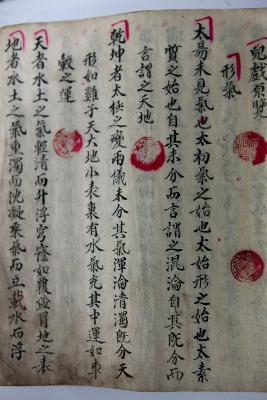 兒戲原覽
形氣
太易未見氣也太初氣之始也太始形之始也太素
質之始也自其未分而言謂之混淪自其既分而
言謂之天地
乾坤者太極之變兩儀未分其氣渾淪清濁既分天
形如雞子天大地小表裏有水氣充其中運如車
轂之運
天者水土之氣輕清而升浮穹窿如覆盆冒地之表
地者水土之氣重濁而沈凝乘氣而立載水而浮